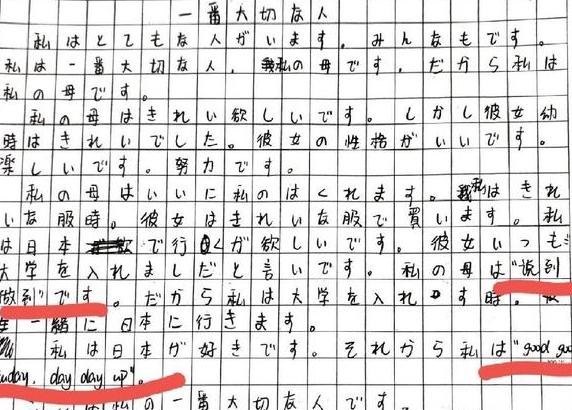 一番大切な人
私はとてもな人がいます。みんなもです。
私は一番大切な人、私の母です。だから私は
私の母です。
私の母はきれい欲しいです。しかし彼女幼
時はきれいでした。彼女の性格がいいです。
楽しいです。努力です。
私の母はいいに私のはくれます。私はきれ
いな服時。彼女はきれいな服で買います。私
は日本で行くが欲しいです。彼女いつも
大学を入れましだと言いです。私の母は"说到
做到"です。だから私は大学を入れ時。
一緒に日本に行きます。
私は日本が好きです。それから私は"good goo
day day up"。
私の一番大切な人です